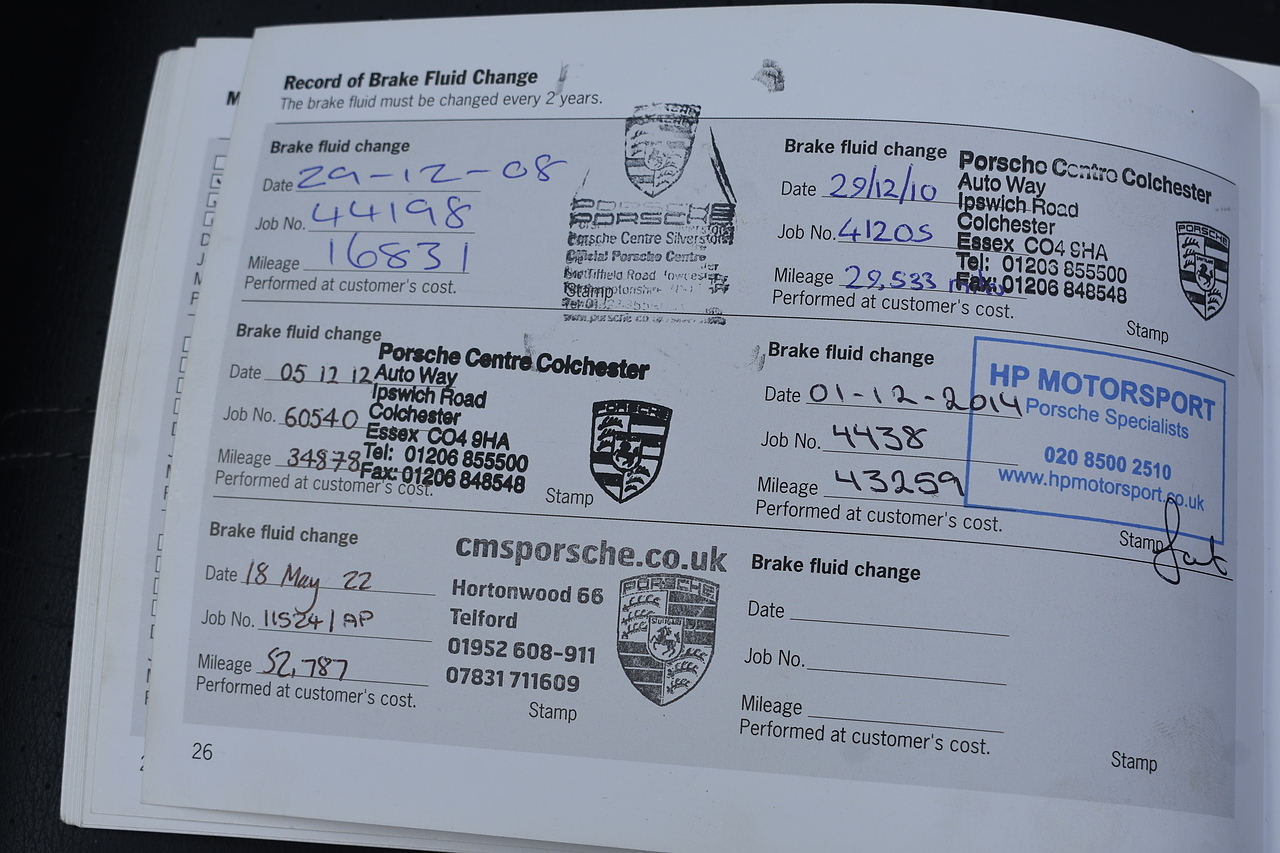 Record of Brake Fluid Change
The brake fluid must be changed every 2 years.
Brake fluid change
Date 29-12-08
Job No. 44198
Mileage 16831
Performed at customer's cost.
PORSCHE
PORSCHE
Porsche Centre Silverstone
Official Porsche Centre
Road
Stamp
Brake fluid change
Date 29/12/10
Job No. 41205
Mileage 29,533
Performed at customer's cost.
Porsche Centre Colchester
Auto Way
Ipswich Road
Colchester
Essex CO4 9HA
Tel: 01206 855500
Fax: 01206 848548
PORSCHE
Stamp
Brake fluid change
Date 05 12 12
Job No. 60540
Mileage 34878
Performed at customer's cost.
Porsche Centre Colchester
Auto Way
Ipswich Road
Colchester
Essex CO4 9HA
Tel: 01206 855500
Fax: 01206 848548
Stamp
Brake fluid change
Date 01-12-2014
Job No. 4438
Mileage 43259
Performed at customer's cost.
HP MOTORSPORT
Porsche Specialists
020 8500 2510
www.hpmotorsport.co.uk
Stamp
Brake fluid change
Date 18 May 22
Job No. 11524/AP
Mileage 52,787
Performed at customer's cost.
cmsporsche.co.uk
Hortonwood 66
Telford
01952 608-911
07831 711609
PORSCHE
Stamp
Brake fluid change
Date
Job No.
Mileage
Performed at customer's cost.
Stamp
26